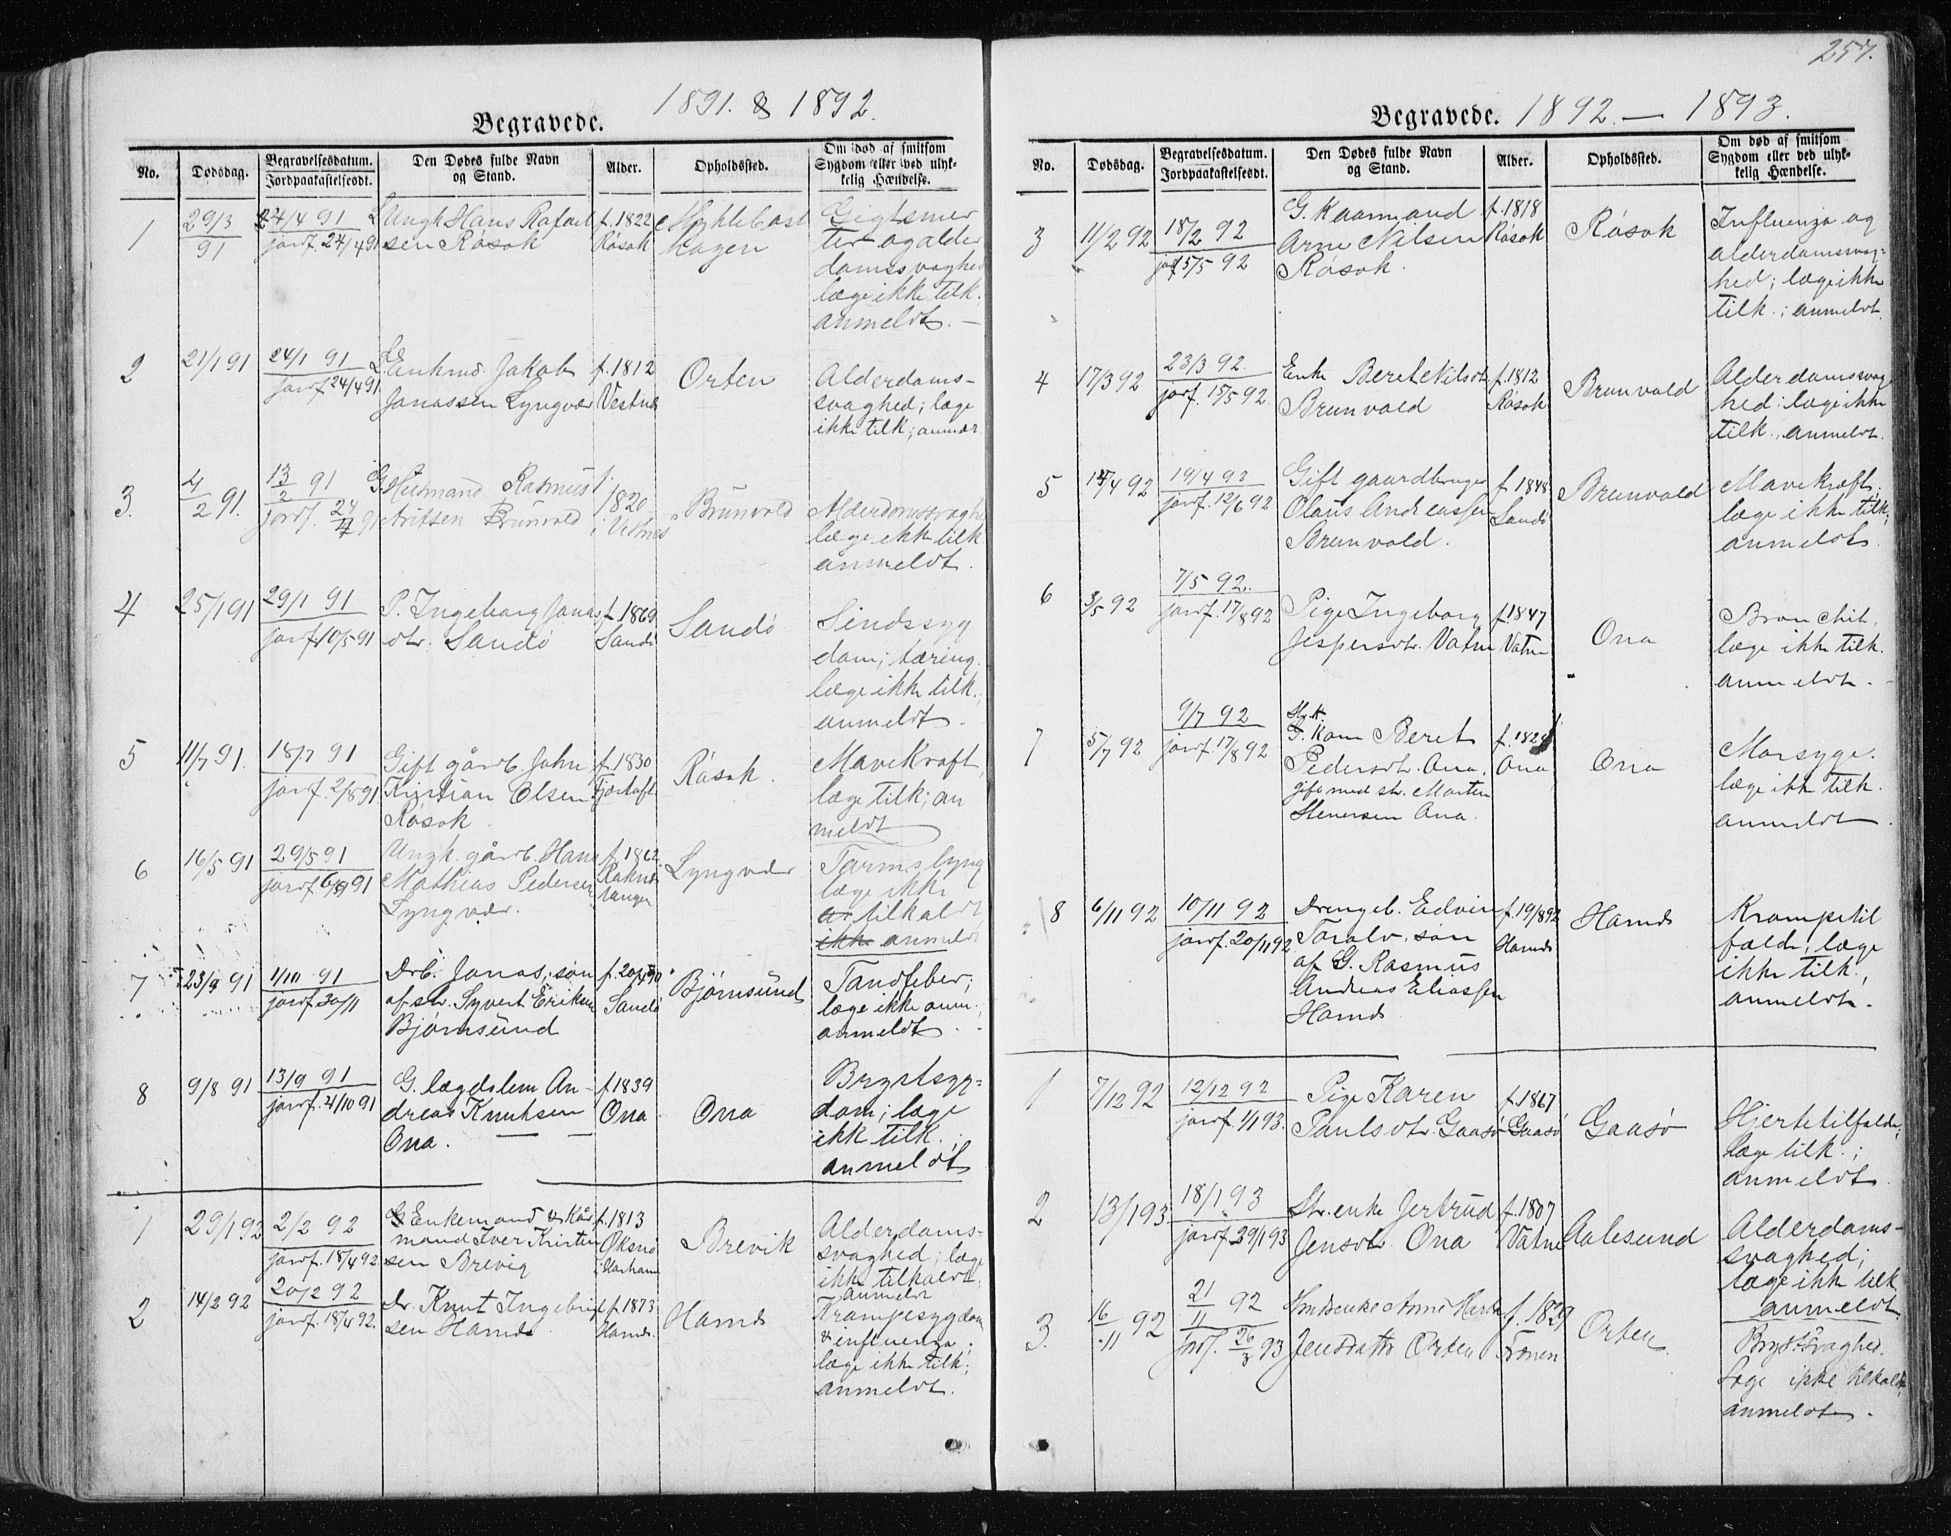 257.
Begravede. 1891. & 1892.
No.
Dødsdag.
Begravelsesdatum.
Jordpaakastelsesdt.
Den Dødes fulde Navn
og Stand.
Alder.
Opholdssted.
Om død af smitsom
Sygdom eller ved ulyk-
kelig Hændelse.
1
29/3
91
24/4 91
jordf. 24/4 91
Ungk Hans Rafael
sen Røsok
f. 1822
Røsok
Myklebost
hagen
Gigtsmer
ter og alder
domssvaghed
læge ikke tilk.
anmeldt. —
2
21/1 91
24/1 91
jordf 24/4 91
Enkmd. Jakob
Jonassen Lyngvær
f. 1812
Vestnes
Orten
Alderdoms-
svaghed; læge
ikke tilk; anmær
3.
4/2 91.
13/2 91
jordf. 24/4 91
G. Husmand Rasmus
Brunvold
f.
1820
i Vestnes
Brunvold
Alderdomssvaghe
læge ikke tilk
anmeldt.
4
25/1 91
29/1 91
jordf 10/5 91
P. Ingeborg Jonas
dtr. Sandø
f. 1869
Sandø
Sandø
Sindssyg
dom; tæring.
læge ikke tilk.
anmeldt.
5
11/7 91.
18/7 91
jordf. 2/8 91
Gift gårdb. John
Kristian Olsen
Røsok
f. 1830
Fjørtoft
Røsok.
Mavekræft,
læge tilk; an
meldt
6
16/5 91
29/5 91
jordf 91
Ungk. gårdb. Hans
Mathias Pedersen
Lyngvær.
f. 1862.
Lyngvær
Tarmslyng
læge ikke
tilkaldt
ikke anmeldt
7
23/9 91
1/10 91
jordf. 30/11
Drb. Jonas, søn
af str. Syvert Eriksen
Bjørnsund
Sandø
Bjørnsund
Tandfeber;
læge ikke anm.
anmeldt.
8
9/8 91
13/9 91
jordf. 4/10 91
G. lægdslem An-
dreas Knutsen
Ona. — —
f 1839
Ona
Ona
Brystsyg=
dom; læge
ikke tilk.
anmeldt
1
29/1 92
2/2 92
jordf. 18/4 92
Enkemand & Kår
mand Iver Kristen
sen Brevig
f. 1813
i Harham
Brevik
Alderdoms-
svaghed; læge
ikke tilkaldt.
anmeldt
2
14/2 92
20/2 92
jordf. 18/4 92.
Dr. Knut Ingebrigt
sen Hamds
f. 1873
Hamds.
Hamds
Krampesygdom
& influenza;
læge ikke tilk;
anmeldt.
Begravede. 1892. — 1893.
No.
Dødsdag.
Begravelsesdatum.
Jordpaakastelsesdt.
Den Dødes fulde Navn
og Stand.
Alder.
Opholdssted.
Om død af smitsom
Sygdom eller ved ulyk-
kelig Hændelse.
3
11/2 92
18/2 92
15/5 92
G. Kaarmand
Arne Nilsen
Røsok.
f. 1818
Røsok
Røsok
Influenza og
alderdomssvag=
hed; læge ikke
tilk.; anmeldt.
4
17/3 92
23/3 92.
jordf. 15/5 92.
Enke Beret Nilsdt.
Brunvold
f. 1812
Røsok
Brunvold
Alderdomssvag
hed; læge ikke
tilk., anmeldt.
5
14/4 92
19/4 92
jordf. 12/6 92
Gift gaardbruger
Olaus Andreassen
Brunvold.
f 1848
Sandø
Brunvold
Mavekræft,
læge ikke tilk;
anmeldt.
6
3/5 92
7/5 92.
jordf. 17/8 92
Pige Ingeborg
Jespersdtr. Vatne
f. 1847
Vatne
Ona
Bronchit,
læge ikke tilk.
anmeldt. -
7
5/7 92
9/7 92
jordf. 17/8 92
G. Kone Beret
Pedersdtr. Ona,
gift med str. Morten
Stenersen Ona.
Ona
Ona
Morsyge.
læge ikke tilk.
anmeldt
8
6/11 92
10/11 92
jordf. 20/11 92
Drengeb. Edvin
Toralv, søn
af G. Rasmus
Andreas Eliassen
Hamds
f. 19/8 92
Hamds
Hamds
Krampetil
fælde; læge
ikke tilk.,
anmeldt.
1
7/12 92
12/12 92
jordf. 1/1 93.
Pige Karen
Paulsdtr. Gaasø
f. 1867
Gaasø
Gaasø
Hjertetilfælde;
læge tilk.;
anmeldt.
2
13/1 93
18/1. 93
jordf. 29/1 93
Str. enke Jertrud
Jensdtr. Ona
f. 1807
Vatne
Aalesund
Alderdoms-
svaghed;
læge ikke tilk
anmeldt
3.
16/11 92
21/11 92
jordf. 26/3 93
Hmdsenke Anne
Jensdatter Orten
f. 1829
Orten.
Brystsvaghed.
Læge ikke tilkaldt,
anmeldt.